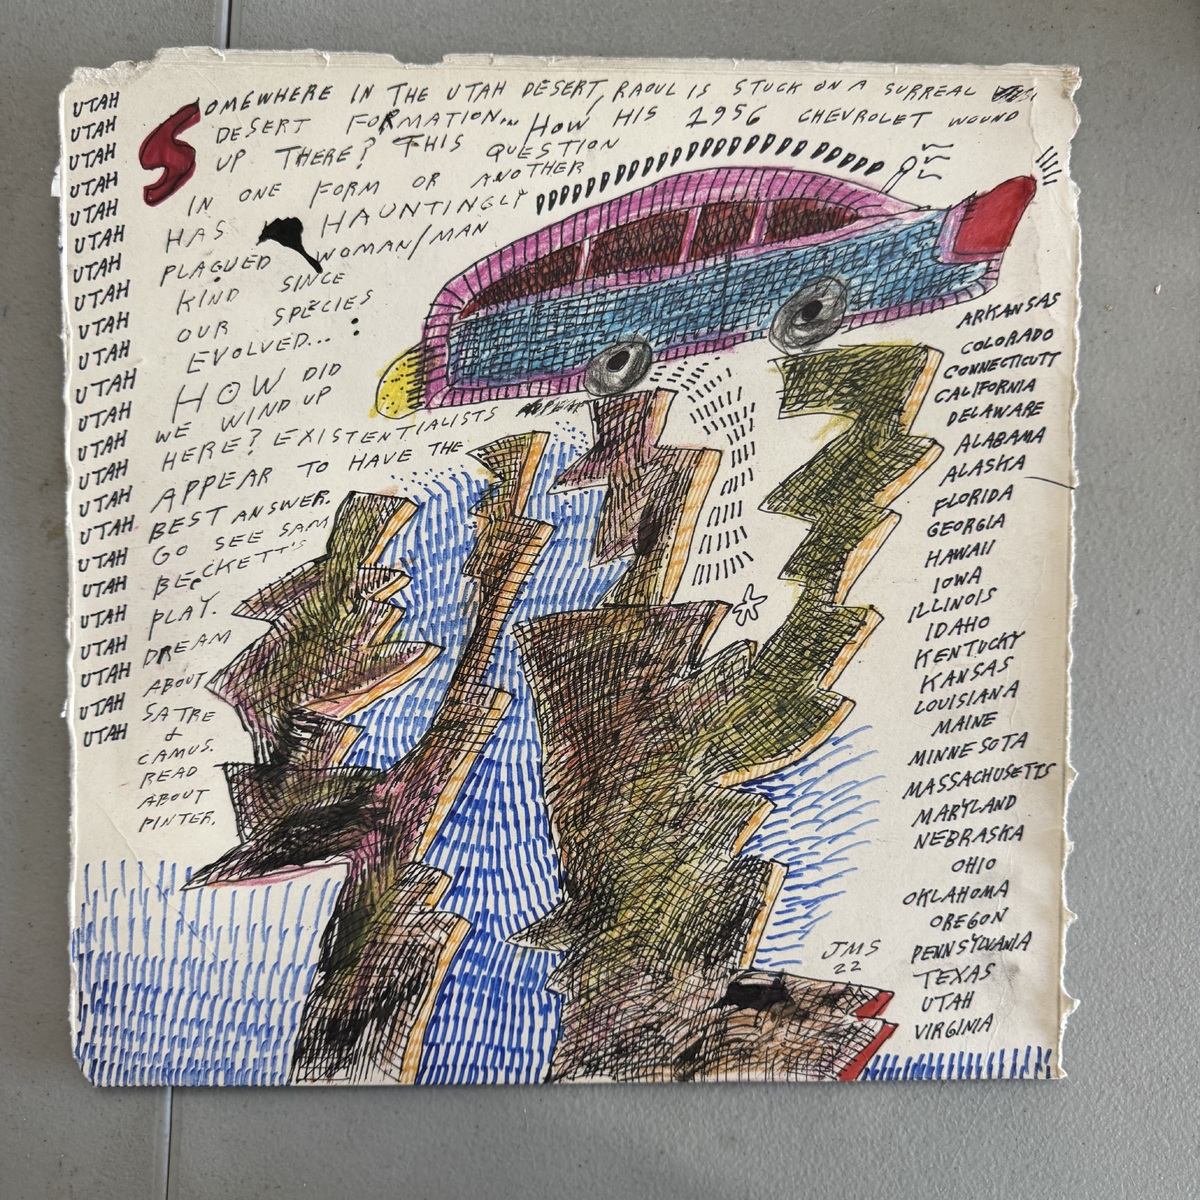 SOMEWHERE IN THE UTAH DESERT, RAOUL IS STUCK ON A SURREAL
DESERT FORMATION... HOW HIS 1956 CHEVROLET WOUND
UP THERE? THIS QUESTION
IN ONE FORM OR ANOTHER
HAS HAUNTINGLY
PLAGUED WOMAN/MAN
KIND SINCE
OUR SPECIES
EVOLVED...
HOW DID
WE WIND UP
HERE? EXISTENTIALISTS
APPEAR TO HAVE THE
BEST ANSWER.
GO SEE SAM
BECKETT'S
PLAY.
DREAM
ABOUT
SATRE
&
CAMUS.
READ
ABOUT
PINTER.
UTAH
UTAH
UTAH
UTAH
UTAH
UTAH
UTAH
UTAH
UTAH
UTAH
UTAH
UTAH
UTAH
UTAH
UTAH
UTAH
UTAH
UTAH
UTAH
UTAH
UTAH
UTAH
UTAH
ARKANSAS
COLORADO
CONNECTICUTT
CALIFORNIA
DELAWARE
ALABAMA
ALASKA
FLORIDA
GEORGIA
HAWAII
IOWA
ILLINOIS
IDAHO
KENTUCKY
KANSAS
LOUISIANA
MAINE
MINNESOTA
MASSACHUSETTS
MARYLAND
NEBRASKA
OHIO
OKLAHOMA
OREGON
PENNSYLVANIA
TEXAS
UTAH
VIRGINIA
JMS
22